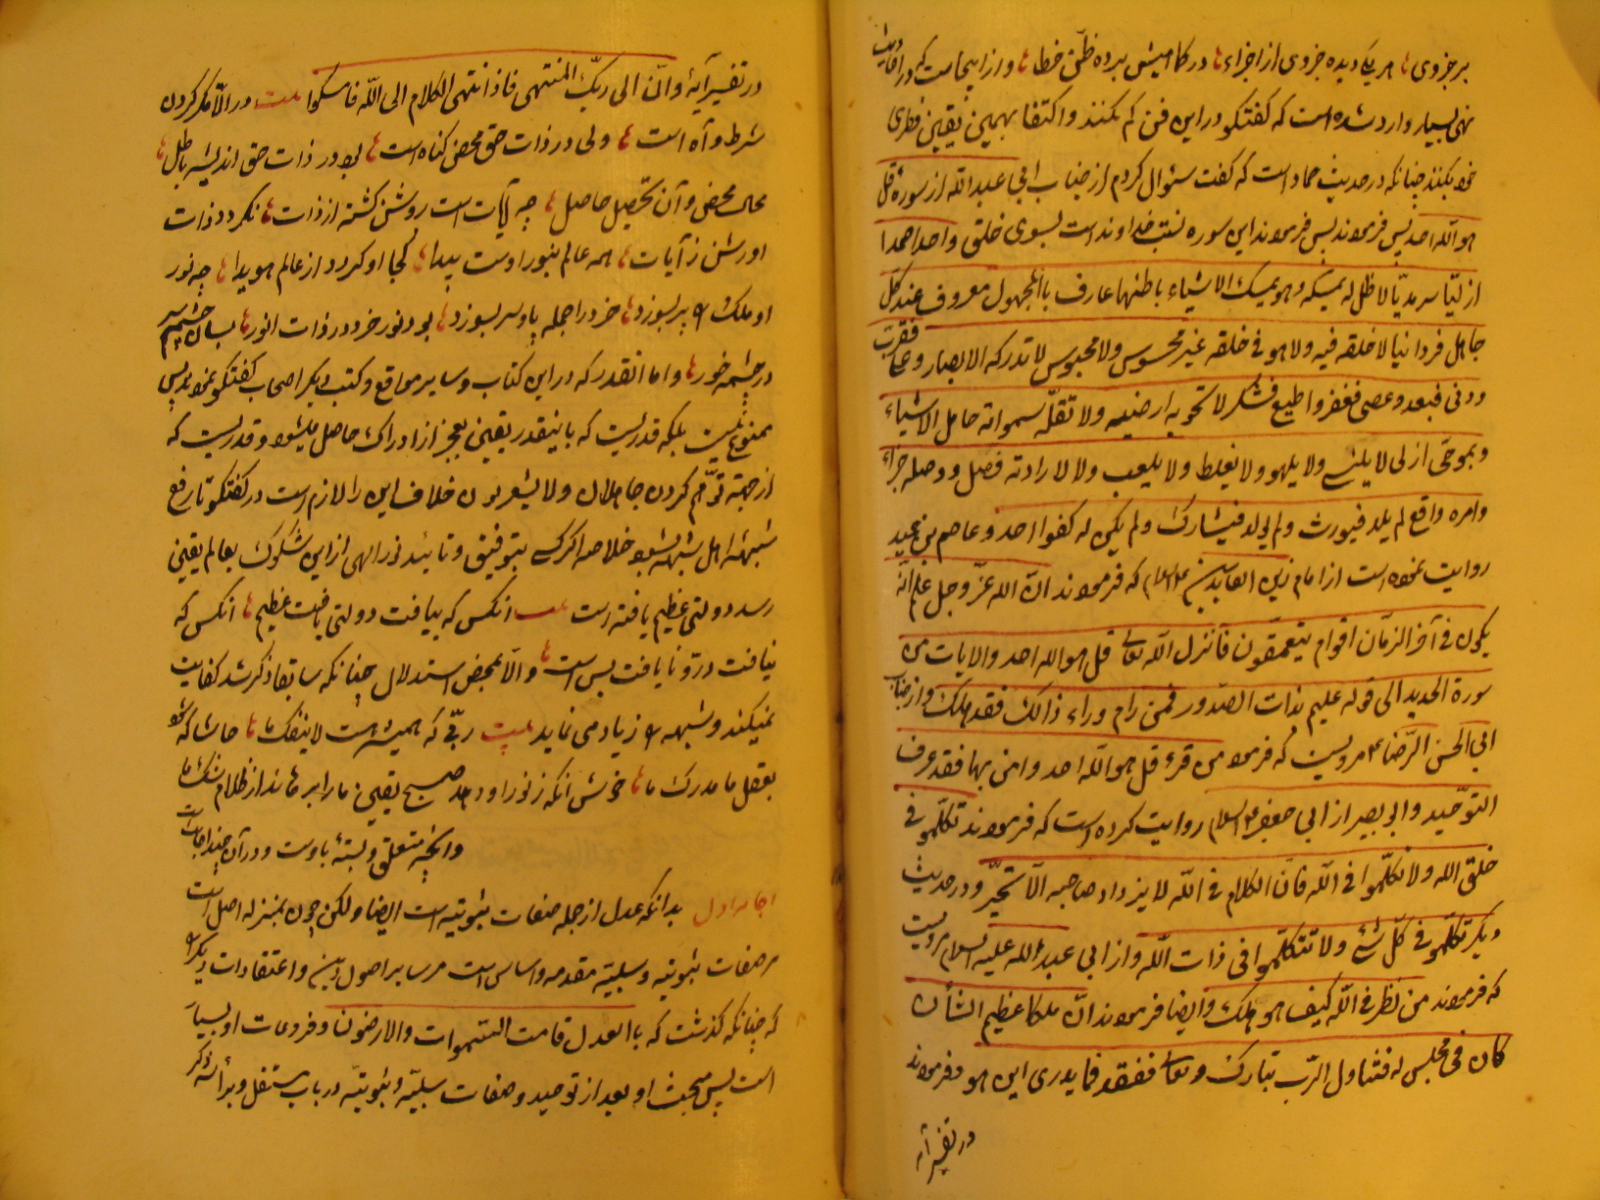 بر جزوی هر یک دیده جزوی از اجزاء در کا میش برده ظن خطا و از اینجاست که در احادیث
نهی بسیار وارد شده است که گفتگو در این فن کم بکنند و اکتفا بهمین یقین فطری
خود بکنند چنانکه در حدیث حماد است که گفت سئوال کردم از جناب ابی عبدالله از سوره قل
هو الله احد پس فرمودند پس فرمودند این سوره نسبت خداوند است بسوی خلق واحدا صمدا
ازلیا سرمدیا لا ظل له یمسکه و هو یمسک الاشیاء باظلتها عارف بالمجهول معروف عند کل
جاهل فردانیا لا خلقه فیه و لا هو فی خلقه غیر محسوس و لا مجسوس لا تدرکه الابصار و علا فقرب
و دنی فبعد و عصی فغفر و اطیع فشکر لا تحویه ارضیه و لا تقله سمواته حامل الاشیاء
و یموحی ازلی لا ینسی و لا یلهو و لا یغلط و لا یلعب و لا لارادته فصل و وصله جزاء
و امره واقع لم یلد فیورث و لم یولد فیشارک و لم یکن له کفوا احد و عاصم بن حمید
روایت نموده است از امام زین العابدین علیه السلام که فرمودند ان الله عز و جل علم انه
یکون فی آخر الزمان اقوام یتعمقون فانزل الله تعالی قل هو الله احد والایات من
سورة الحدید الی قوله علیم بذات الصدور فمن رام وراء ذالک فقد هلک و از جناب
ابی الحسن الرضا ع مرویست که فرمود من قرء قل هو الله احد و امن بها فقد عرف
التوحید و ابی بصیر از ابی جعفر علیه السلام روایت کرده است که فرمودند تکلموا فی
خلق الله و لا تکلموا فی الله فان الکلام فی الله لا یزداد صاحبه الا تحیر و در حدیث
دیگر تکلموا فی کل شئ و لا تتکلموا فی ذات الله و از ابی عبدالله علیه السلام مرویست
که فرمودند من نظر فی الله کیف هو هلک و ایضا فرمودند ان ملکا عظیم الشأن
کان فی مجلس له فتناول الرب تبارک و تعالی ففقد فما یدری این هو و فرمودند
در تفسیر آیه
در تفسیر آیه و ان الی ربک المنتهی فاذا انتهی الکلام الی الله فامسکوا بیت در آلاء فکر کردن
شرط راه است ولی در ذات حق محض گناه است بود در ذات حق اندیشه باطل
محال محض دان تحصیل حاصل چه آیات است روشن گشته از ذات نگردد ذات
او روشن ز آیات همه عالم بنور اوست پیدا کجا او گردد از عالم هویدا چه نور
او ملک را پر بسوزد خرد را جمله پا و سر بسوزد بود نور خرد در ذات انور بسان چشم سر
در چشمه خور و اما انقدر که در این کتاب و سایر مواقع و کتب دیگر اصحاب گفتگو نموده پس
ممنوع نیست بلکه قدریست که باینقدر یقین بعجز از ادراک حاصل میشود و قدریست که
از جهة توهم کردن جاهلان و لا یشعرون خلاف این را لازم است در گفتگو تا رفع
شبهه اهل شبهه بشود خلاصه اگر کسی بتوفیق و تائید نور الهی از این شکوک بعالم یقین
رسد دولتی عظیم یافته است بیت آنکس که بیافت دولتی یافت عظیم آنکس که
نیافت درد نایافت بس است و الا بمحض استدلال چنانکه سابقا ذکر شد کفایت
نمیکند و شبهه را زیاد می نماید بیت ربی که همیشه هست لا ینفک ما حاشا که شود
بعقل ما مدرک ما خوش آنکه ز نور او دمد صبح یقین ما را برهاند از ظلام شک ما
و آنچه متعلق و بسته باوست و در آن چند اجابات است
اجابه اول بدانکه عدل از جمله صفات ثبوتیه است ایضا ولکن چون بمنزله اصل است
مر صفات ثبوتیه و سلبیه مقدمه و اساس است مر سایر اصول دین و اعتقادات دیگر را
که چنانکه گذشت که بالعدل قامت السموات والارضون و فروعات او بسیار
است پس مبحث او بعد از توحید و صفات سلبیه و ثبوتیه در باب مستقل و برأسه ذکر